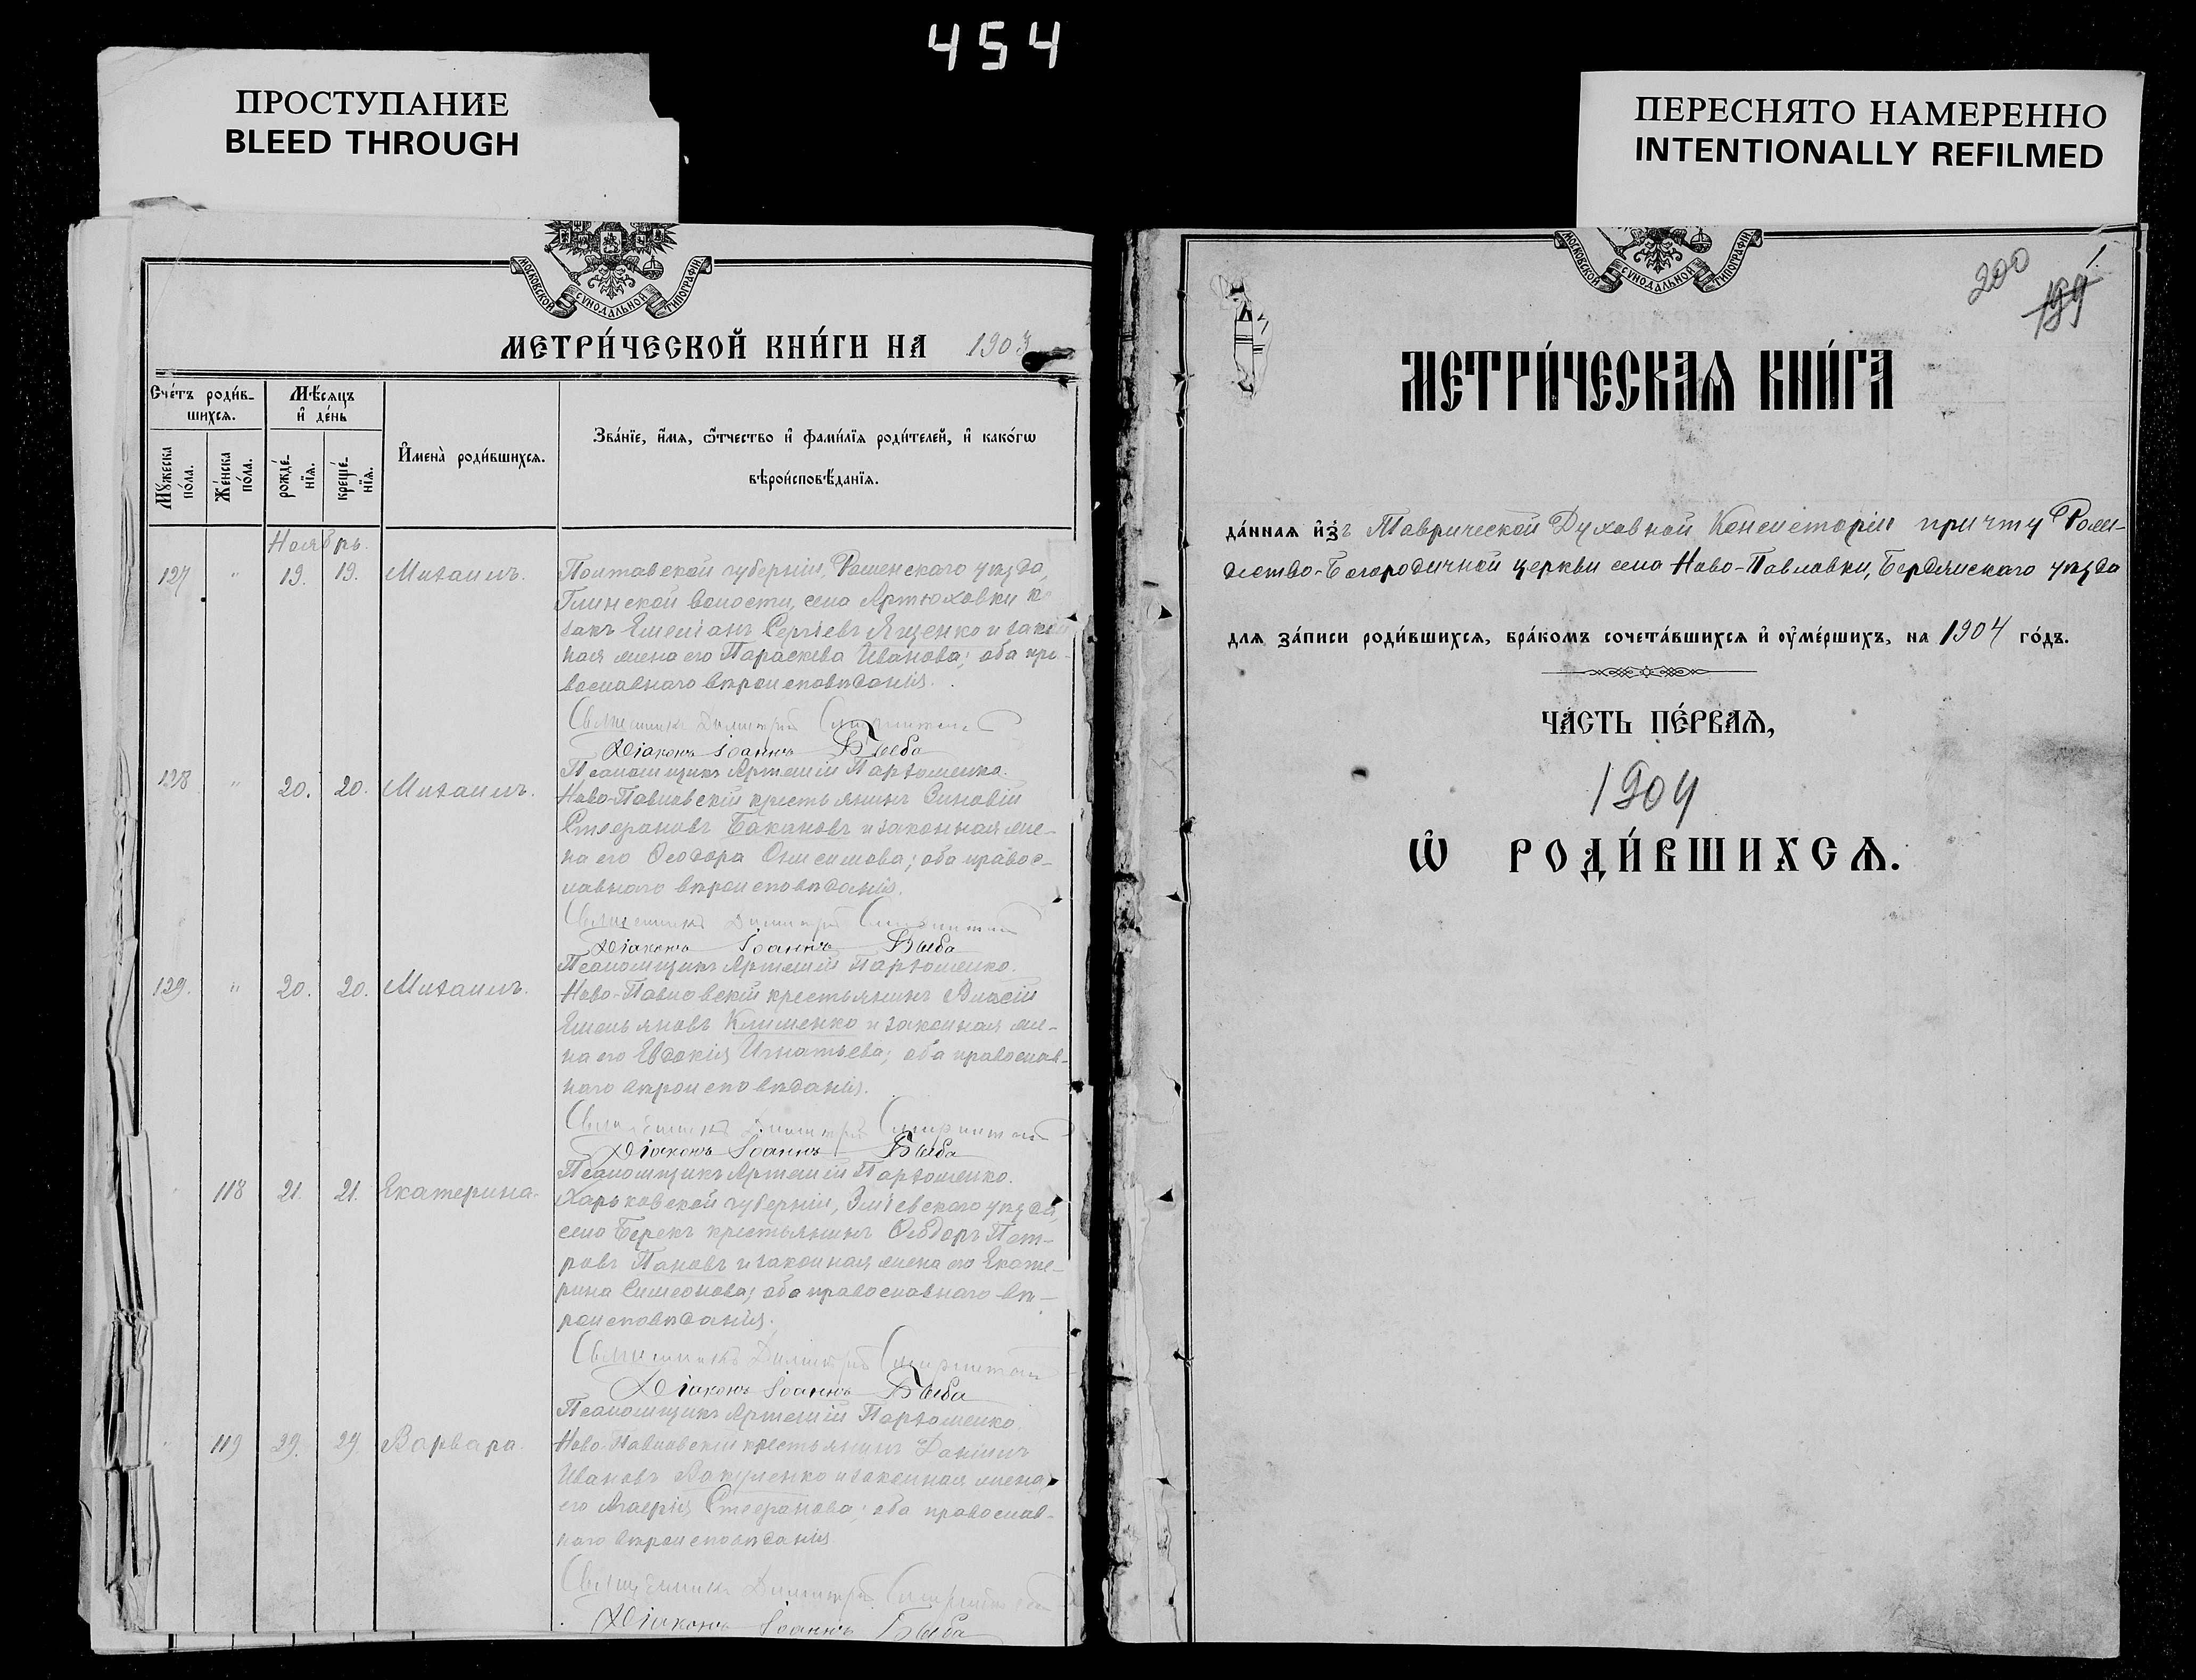 454
ПРОСТУПАНИЕ
BLEED THROUGH
ПЕРЕСНЯТО НАМЕРЕННО
INTENTIONALLY REFILMED
МОСКОВСКОЙ СУНОДАЛЬНОЙ ТИПОГРАФІИ
МЕТРИ́ЧЕСКОЙ КНИ́ГИ НА 1903
Сче́тъ роди́в-
шихсѧ.
Мѣ́сяцъ
и҆ де́нь
Мꙋ́жеска по́ла.
Же́нска по́ла.
рожде́-
нїѧ.
креще́-
нїѧ.
И҆мена̀ роди́вшихсѧ.
Зва́нїе, и҆́мѧ, ѻ҆́тчество и҆ фами́лїѧ роди́телей, и҆ како́гѡ
вѣроисповѣ́данїѧ.
Ноябрь.
127 " 19. 19. Михаилъ.
Полтавской губерніи, Роменскаго уѣзда,
Глинской волости, села Артюховки ко
закъ Емеліанъ Сергіевъ Ященко и закон
ная жена его Параскева Иванова; оба пра-
вославнаго вѣроисповѣданія.
Священникъ Димитрій
Діаконъ Іоаннъ Быба
Псаломщикъ Артемій Пархоменко.
128 " 20. 20. Михаилъ.
Ново-Павловскій крестьянинъ Зиновій
Стефановъ Бакановъ и законная же-
на его Ѳеодора Онисимова; оба правос-
лавнаго вѣроисповѣданія.
Священникъ Димитрій
Діаконъ Іоаннъ Быба
Псаломщикъ Артемій Пархоменко.
129. " 20. 20. Михаилъ.
Ново-Павловскій крестьянинъ Алексій
Емельяновъ Клименко и законная же-
на его Евдокія Игнатьева; оба православ-
наго вѣроисповѣданія.
Священникъ Димитрій
Діаконъ Іоаннъ Быба
Псаломщикъ Артемій Пархоменко.
118 21. 21. Екатерина.
Харьковской губерніи, Зміевскаго уѣзда,
села Берекъ крестьянинъ Ѳеодоръ Пет-
ровъ Пановъ и законная жена его Екате-
рина Симеонова; оба православнаго вѣ-
роисповѣданія.
Священникъ Димитрій
Діаконъ Іоаннъ Быба
Псаломщикъ Артемій Пархоменко
" 119 29. 29. Варвара.
Ново-Павловскій крестьянинъ Даніилъ
Ивановъ Вакуленко и законная жена
его Агафія Стефанова; оба православ-
наго вѣроисповѣданія
Священникъ Димитрій
Діаконъ Іоаннъ Быба
МОСКОВСКОЙ СУНОДАЛЬНОЙ ТИПОГРАФІИ
200
199
1
МЕТРИ́ЧЕСКАѦ КНИ́ГА
да́ннаѧ и҆зъ Таврической Духовной Консисторіи причту Рож-
дество-Богородичной церкви села Ново-Павловки, Бердянскаго уѣзда
для за́писи роди́вшихсѧ, бра́комъ сочета́вшихсѧ и҆ ᲂу҆ме́ршихъ, на 1904 го́дъ.
ЧА́СТЬ ПЕ́РВАѦ,
1904
Ѡ҆ РОДИ́ВШИХСѦ.